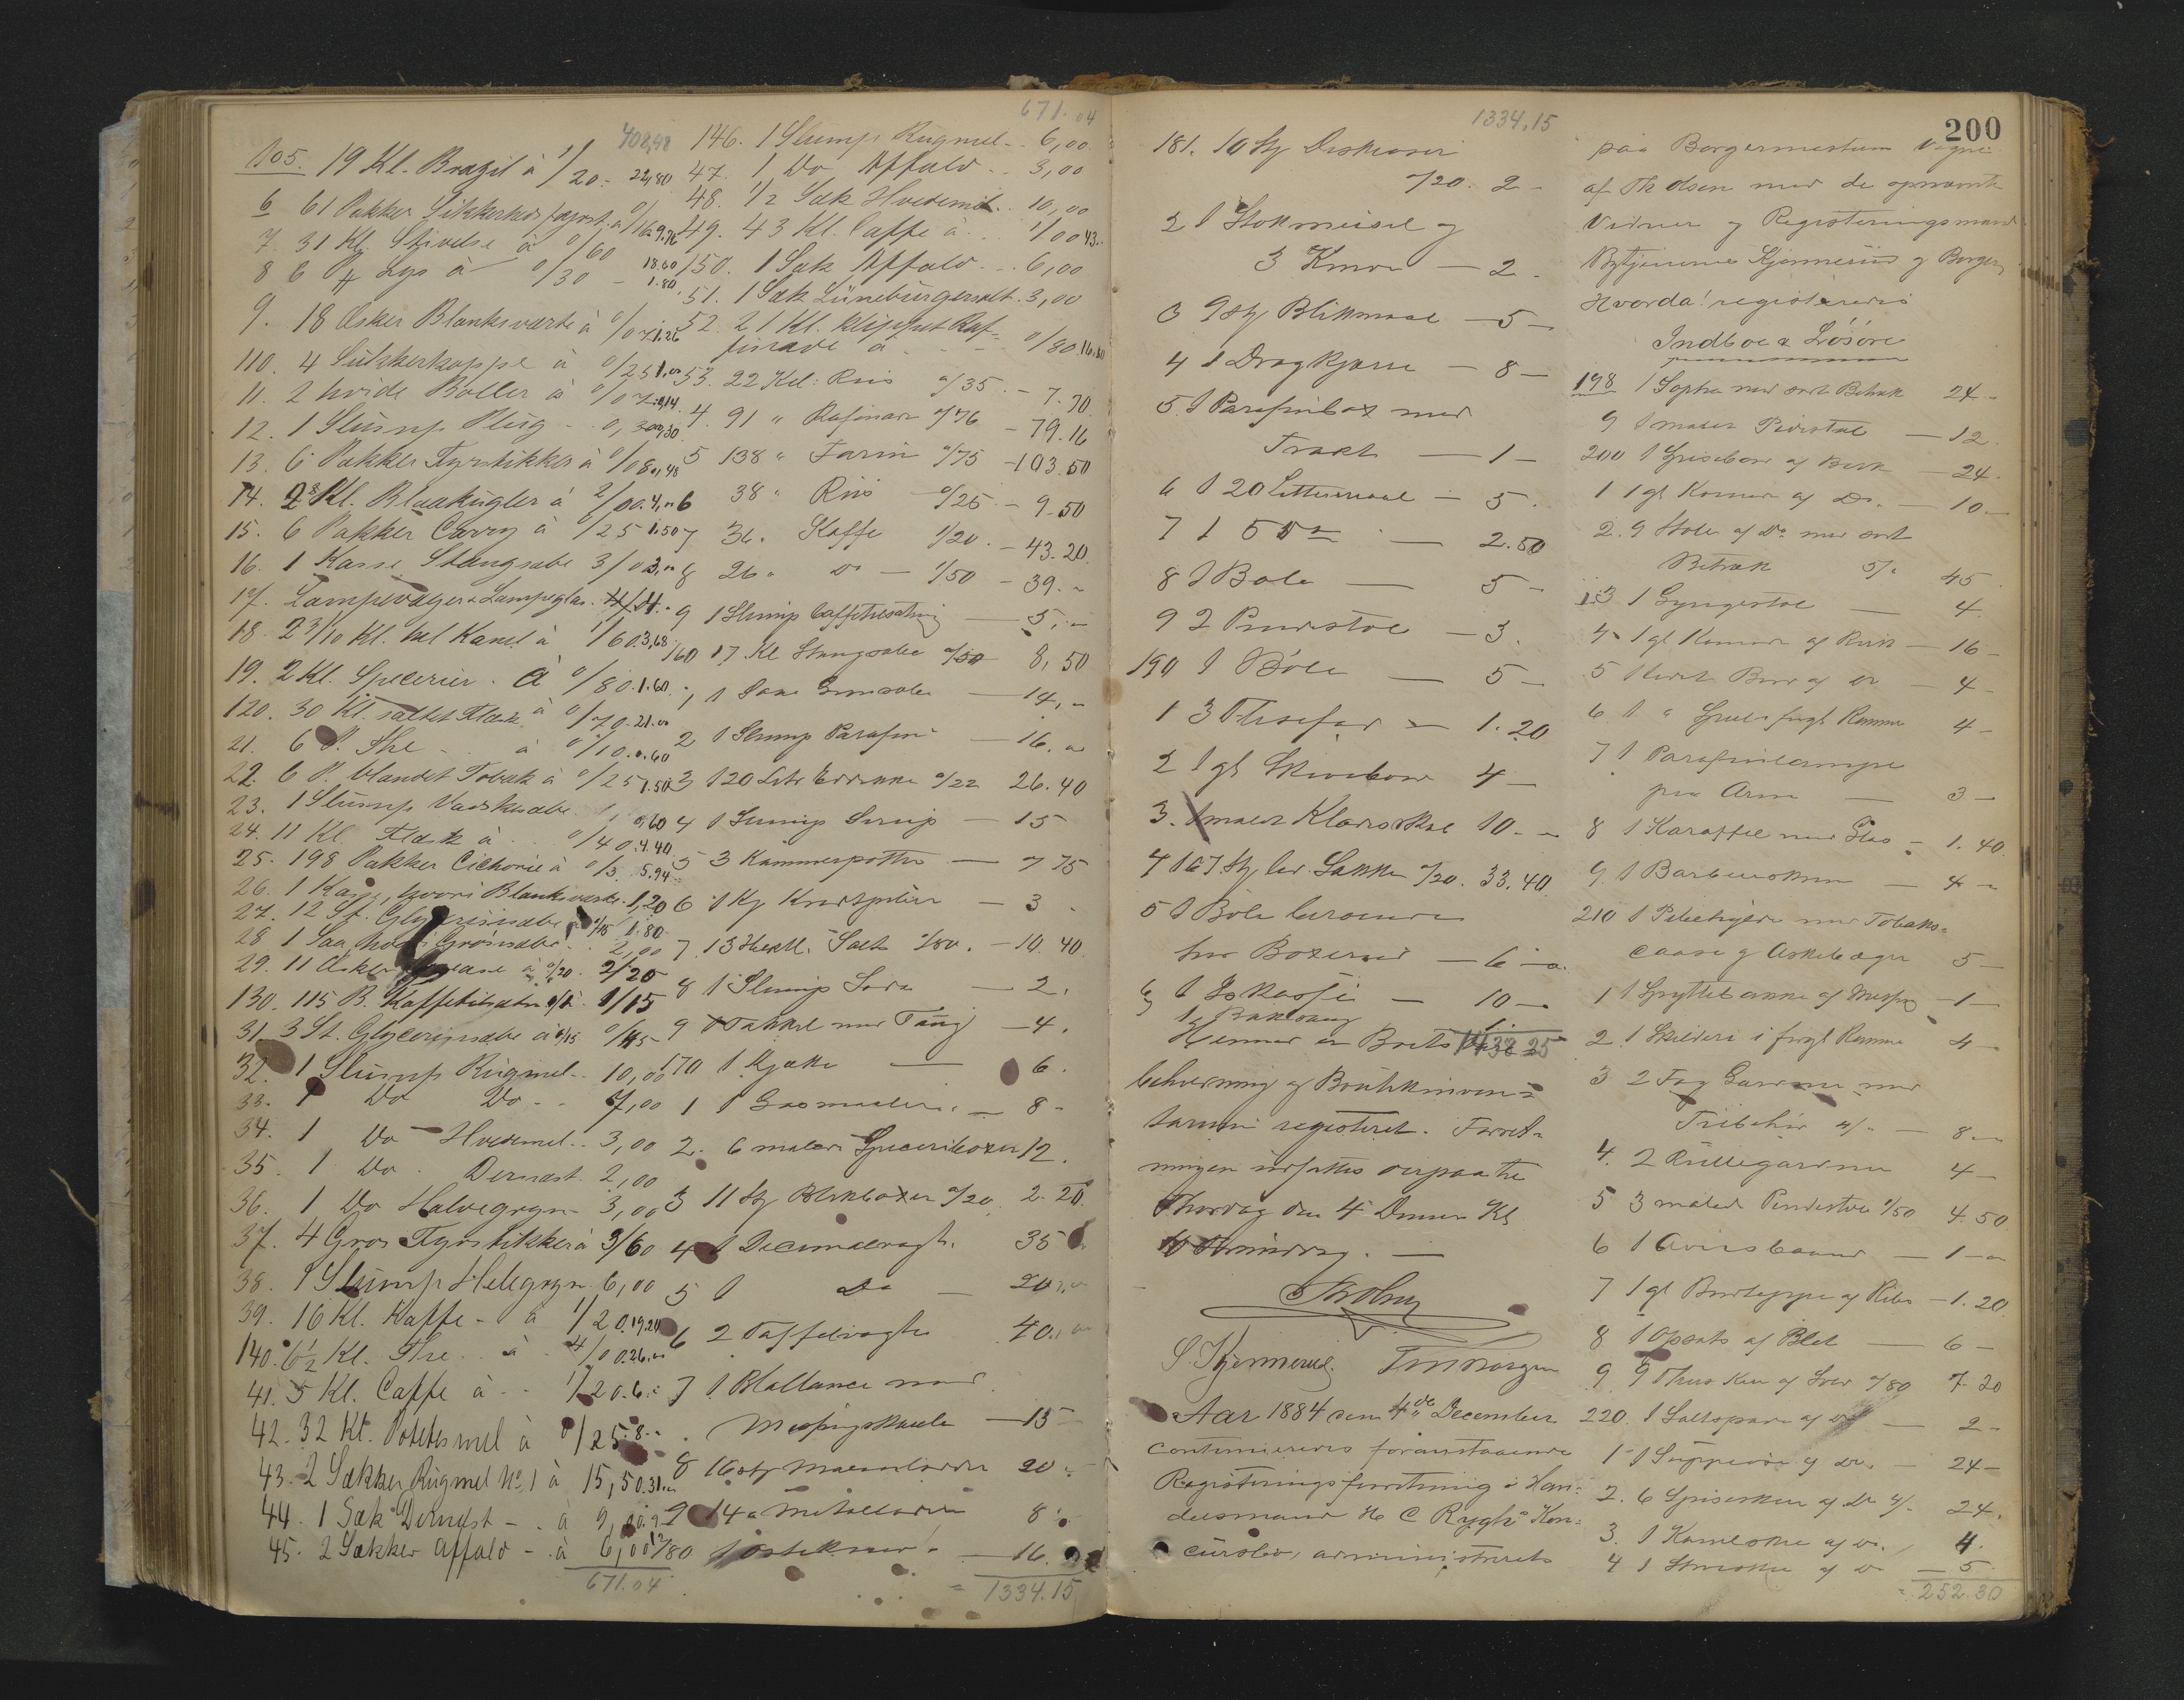 408,48
105. 19 Kl. Brazil à 1/20. 22,80
6 61 Pakker Sikkerheds à 0/16 9.76
7. 31 Kl. Stivelse à 0/60 18.60
8 6 Lys à 0/30 - 1.80
9. 18 Æsker Blanksværte à 0/07 1.26
110. 4 Sukkerkoppe à 0/25 1,00
11. 2 hvide Boller à 0/07 0,14
12. 1 Slump Plug - 0,30 0,30
13. 6 Pakker Fyrstikker à 0/08 0,48
14. 2 Kl. Blaakugler à 2/00. 4,"
15. 6 Pakker Carry à /25 1.50
16. 1 Kasse Stangsæbe 3/0 3,"
17. Lampevæger & Lampeglas. 4/
18. 2 3/10 Kl. hel Kanel à 1/60 3,68
19. 2 Kl. Specerier. à 0/80. 1.60
120. 30 Kl. saltet Flesk à 0/70. 21."
21. 6 P. The - à 0/10. 0.60
22. 6 P. blandet Tobak à 0/25 1.50
23. 1 Slump Vadskesæbe. 0,60
24. 11 Kl. Flesk à 0/40. 4.40
25. 198 Pakker Cichorie à 0/3. 5.94
26. 1 Kasse, hvori Blanksværte. 1,20
27. 12 St. Glycerinsæbe 0/15 1.80
28 1 Saa hvori Grønsæbe 2,00
29. 11 Æsker à 0/20. 2/20
130. 115 B. Kaffetilsætn 0/1. 1/15
31. 3 St. Glycerinsæbe à 0/15 0/45
32. 1 Slump Rugmel - 10,00
33. 1 Do Do - 7,00
34. 1 Do Hvedemel - 3,00
35. 1 Do Dernæst. 2,00
36. 1 Do Halvegryn - 3,00
37. 4 Gros Fyrstikker à 3/60
38. 1 Slump Helegryn 6,00
39. 16 Kl. Kaffe - à 1/20. 19,20
140. 6 1/2 Kl. The - à 4/00. 26,"
41. 5 Kl. Caffe à - 1/20. 6."
42. 32 Kl. Potetesmel à 0/25. 8."
43. 2 Sækker Rugmel No. 1 à 15,50. 31."
44. 1 Sæk Dernæst - à 9,00. 9
45. 2 Sækker Affald - à 6,00 12
671.04
671.04
146. 1 Slump Rugmel - 6,00
47. 1 Do Affald - 3,00
48. 1/2 Sæk Hvedemel. 10,00
49. 43 Kl. Caffe à 1/00 43.
150. 1 Sæk Affald - 6,00
51. 1 Sæk Lüneburgersalt. 3,00
52. 21 Kl. klippet Raf-
finade à - 0/80. 16,80
53. 22 Kl: Riis 0/35 - 7.70
4. 91 " Rafinade 0/76 - 79.16
5 138 " Farin 0/75 - 103.50
6 38 " Riis 0/25 - 9.50
7 36 " Kaffe 1/20. - 43.20
8 26 " do - 1/50 - 39."
9 1 Slump Caffetilsætning - 5,"
160 17 Kl Stangsæbe 0/50 8,50
1 1 Kasse Grønsæbe - 14,"
2 1 Slump Parafin - 16."
3 120 Liter Eddikke 0/22 26.40
4 1 Slump Sirup - 15
5 3 Kammerpotter - 75
6 1 Kg - 3
7. 13 Hektl. Salt 0/80. - 10.40
8 1 Slump Soda - 2.
9 1 Takkel med Toug - 4.
170 1 Kjælke - 6.
1 1 - 8 -
2. 6 malede Specerieboxer 12.
3 11 Stk Blikboxer 0/20. 2.20
4 1 Decimalvægt. 35
5 1 Do - 20,"
6 2 Taffelvægter 40,"
7 1 Ballance med
Messingskaale - 15
8 16 Stk 20
9 14 " Metallodder 8"
180 1 Osteklokke - 16
= 1334.15
1334,15
181. 10 Stk
0/20. 2 -
2 1 Stokmeisel og
3 Knive - 2 -
3 9 Stk Blikmaal - 5 -
4 1 Dragkjærre - 8 -
5. 1 Parafinbox med
Tragt - 1 -
6 1 20 Littermaal - 5.
7 1 5 Do - 2.50
8 1 Bole - 5 -
9 2 Pindestole - 3.
190 1 Bole - 5 -
1 3 - 1.20
2 1 gl Skrivebord 4 -
3. 1 malet Klædeskab 10. -
4 167 Stk Sække 0/20. 33.40
5 1 Bole beroende
hos - 6 -
6 1 - 10 -
7 1
1438 25
Hermed er Boets
beholdning og Boutikinven=
tarium registeret. Forret-
ningen udsattes derpaa til
Thorsdag den 4 Dennes Kl
10 Formiddag. -
S Kjennerud.
Aar 1884 den 4de December
continueredes foranstaaende
Registeringsforretning i Han=
delsmand H C Ryghs Kon=
cursbo, administreret
200
paa Borgermesterens Vegne
af Th Olsen med de opnævnte
Vidner og Registeringsmænd
Bytjenerne Kjennerud og Borgen
Hvorda! registeredes
Indboe & Løsøre
198 1 Sopha med sort Betræk 24 -
9 1 malet Pidestal - 12.
200 1 Spisebord af Birk - 24.
1 1 gl Komode af Do. - 10 -
2. 9 Stole af Do. med sort
Betræk 5/" 45
3 1 Gyngestol - 4.
4 1 gl Komode af Birk - 16 -
5 1 lidet Bord af do - 4 -
6 1 " Speil i forgl Ramme 4 -
7 1 Parafinlampe
paa Arm - 3 -
8 1 Karaffel med Glas - 1.40.
9 1 - 4 -
210 1 Pibehylde med Tobaks=
daase og Askebæger 5 -
1 1 Spyttebakke af Messing - 1 -
2 1 Skilderi i forgl Ramme 4 -
3 2 Fag Gardiner med
Tilbehør 4/" - 8 -
4. 2 Rullegardiner 4 -
5 3 malede Pindestole 1/50 4.50
6 1 - 1 -
7 1 gl Bordteppe - 1.20
8 1 Opsats af Blet - 6 -
9 9 Theeskeer af Sølv 0/80 7.20
220. 1 Saltspade af do - 2 -
1 1 Suppeøse af do. - 24 -
2. 6 Spiseskeer af do 4/. 24.
3. 1 af do. 4.
4 1 af do - 5.
= 252.30